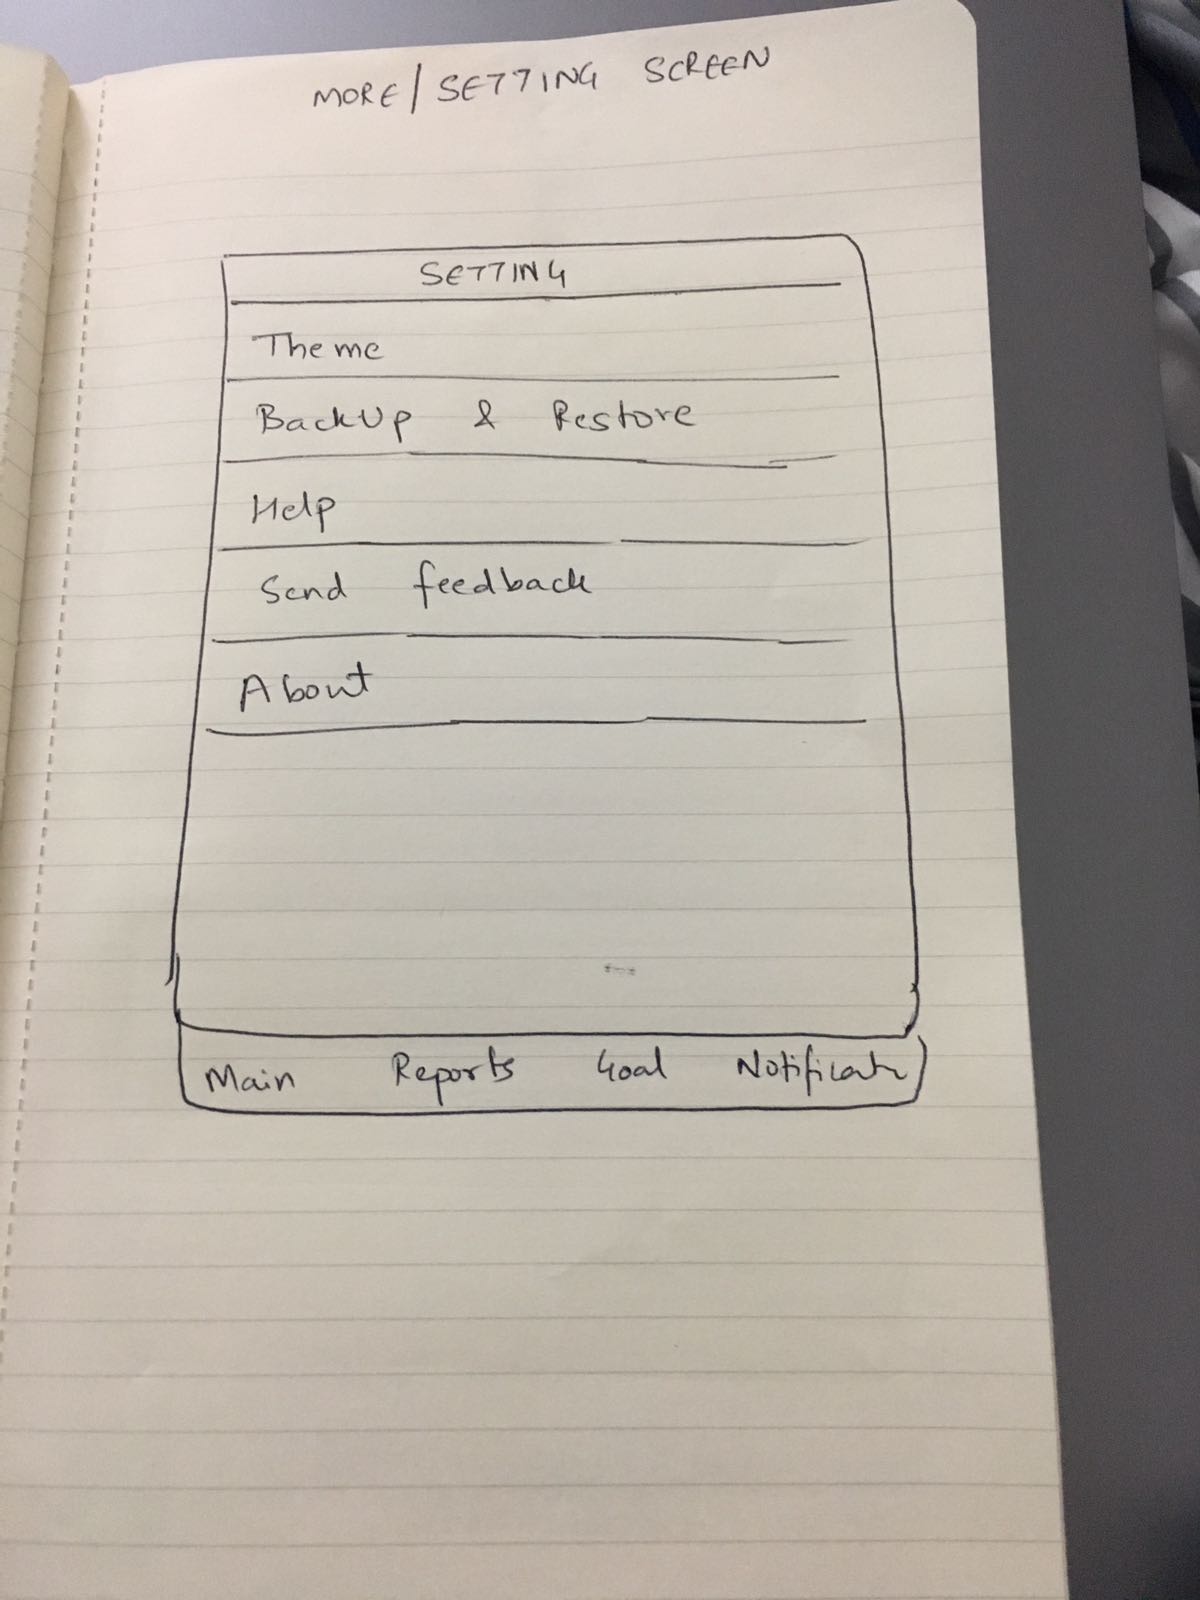 MORE/SETTING SCREEN
SETTING
Theme
BackUp & Restore
Help
Send feedback
About
Main Reports Goal